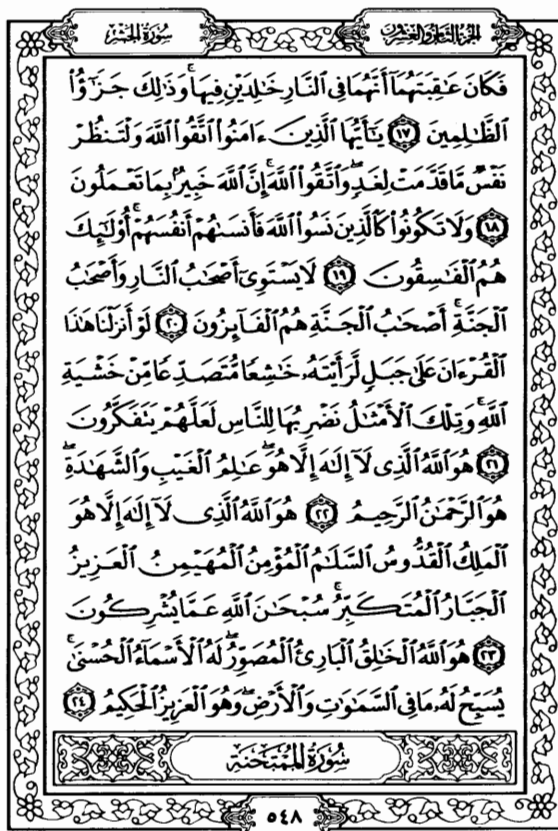 الجزء الثامن والعشرون
سورة الحشر
فَكَانَ عَـٰقِبَتَهُمَآ أَنَّهُمَا فِى ٱلنَّارِ خَـٰلِدَيْنِ فِيهَا ۚ وَذَٰلِكَ جَزَٰٓؤُا۟
ٱلظَّـٰلِمِينَ ١٧ يَـٰٓأَيُّهَا ٱلَّذِينَ ءَامَنُوا۟ ٱتَّقُوا۟ ٱللَّهَ وَلْتَنظُرْ
نَفْسٌ مَّا قَدَّمَتْ لِغَدٍ ۖ وَٱتَّقُوا۟ ٱللَّهَ ۚ إِنَّ ٱللَّهَ خَبِيرٌۢ بِمَا تَعْمَلُونَ
١٨ وَلَا تَكُونُوا۟ كَٱلَّذِينَ نَسُوا۟ ٱللَّهَ فَأَنسَىٰهُمْ أَنفُسَهُمْ ۚ أُو۟لَـٰٓئِكَ
هُمُ ٱلْفَـٰسِقُونَ ١٩ لَا يَسْتَوِىٓ أَصْحَـٰبُ ٱلنَّارِ وَأَصْحَـٰبُ
ٱلْجَنَّةِ ۚ أَصْحَـٰبُ ٱلْجَنَّةِ هُمُ ٱلْفَآئِزُونَ ٢٠ لَوْ أَنزَلْنَا هَـٰذَا
ٱلْقُرْءَانَ عَلَىٰ جَبَلٍ لَّرَأَيْتَهُۥ خَـٰشِعًا مُّتَصَدِّعًا مِّنْ خَشْيَةِ
ٱللَّهِ ۚ وَتِلْكَ ٱلْأَمْثَـٰلُ نَضْرِبُهَا لِلنَّاسِ لَعَلَّهُمْ يَتَفَكَّرُونَ
٢١ هُوَ ٱللَّهُ ٱلَّذِى لَآ إِلَـٰهَ إِلَّا هُوَ ۖ عَـٰلِمُ ٱلْغَيْبِ وَٱلشَّهَـٰدَةِ ۖ
هُوَ ٱلرَّحْمَـٰنُ ٱلرَّحِيمُ ٢٢ هُوَ ٱللَّهُ ٱلَّذِى لَآ إِلَـٰهَ إِلَّا هُوَ
ٱلْمَلِكُ ٱلْقُدُّوسُ ٱلسَّلَـٰمُ ٱلْمُؤْمِنُ ٱلْمُهَيْمِنُ ٱلْعَزِيزُ
ٱلْجَبَّارُ ٱلْمُتَكَبِّرُ ۚ سُبْحَـٰنَ ٱللَّهِ عَمَّا يُشْرِكُونَ
٢٣ هُوَ ٱللَّهُ ٱلْخَـٰلِقُ ٱلْبَارِئُ ٱلْمُصَوِّرُ ۖ لَهُ ٱلْأَسْمَآءُ ٱلْحُسْنَىٰ ۚ
يُسَبِّحُ لَهُۥ مَا فِى ٱلسَّمَـٰوَٰتِ وَٱلْأَرْضِ ۖ وَهُوَ ٱلْعَزِيزُ ٱلْحَكِيمُ ٢٤
سُورَةُ المُمْتَحنَة
٥٤٨